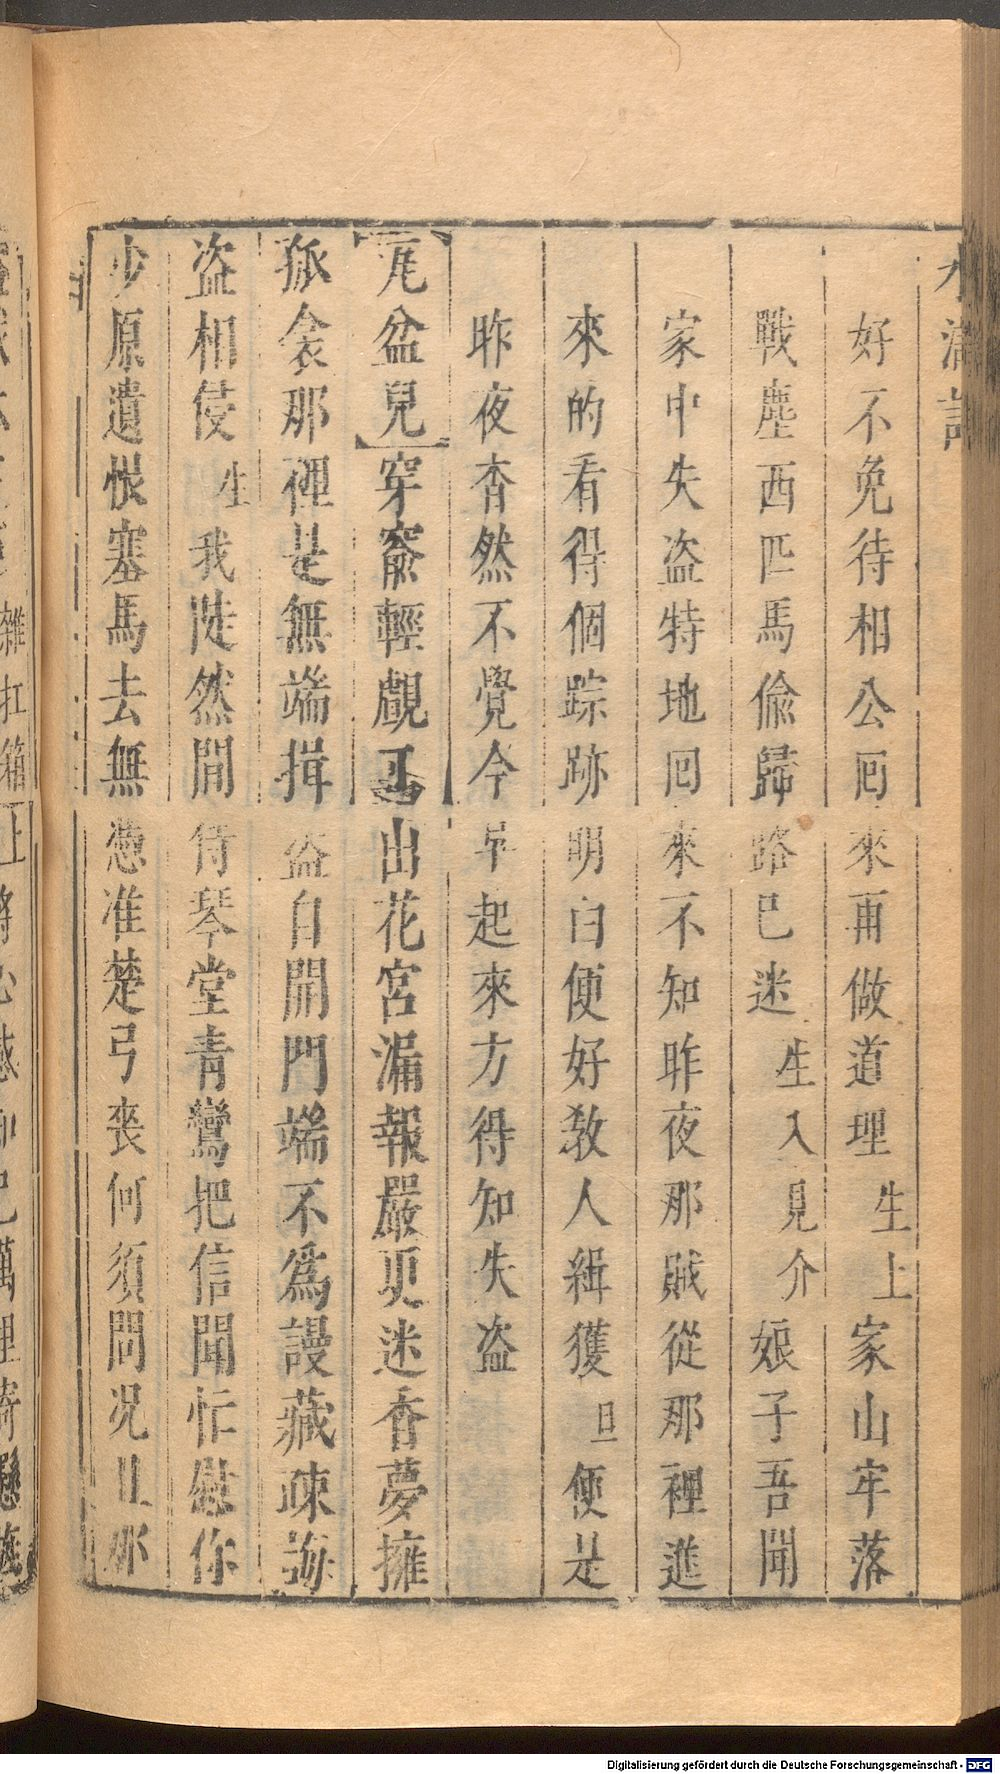 水滸記
好不免待相公囘來再做道理生上家山牢落
戰塵西匹馬偸歸路已迷生入見介娘子吾聞
家中失盜特地囘來不知昨夜那賊從那裡進
來的看得個踪跡明白便好教人緝獲旦便是
昨夜杳然不覺今早起來方得知失盜
尾盆兒穿窬輕覷出花宮漏報嚴更迷香夢擁
孤衾那裡是無端揖盜自開門端不爲謾藏疎誨
盜相侵生我陡然間侍琴堂青鸞把信聞忙慰你
少原遺恨塞馬去無憑准楚弓喪何須問况且那
雜扛箱上
Digitalisierung gefördert durch die Deutsche Forschungsgemeinschaft - DFG